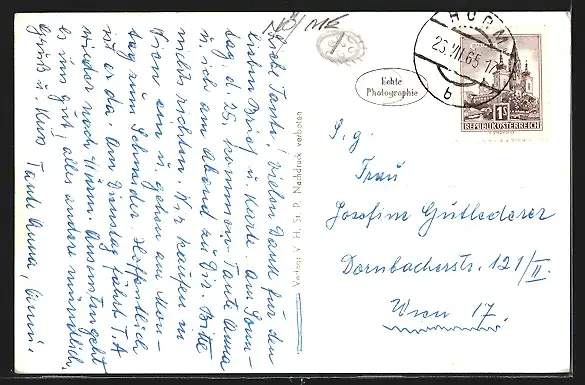 Liebe Tante! Vielen Dank für den
lieben Brief u. Karte. Am Sonn-
tag, d. 25. kommen Tante Anna
u. ich am Abend zu Dir. Bitte
nichts richten. Wir kaufen in
Wien ein u. gehen am Mon-
tag zum Schneider. Hoffentlich
ist er da. Am Dienstag fährt T.A
wieder nach Hürm. Ansonsten geht
es uns gut, alles andere mündlich.
Gruß u. Kuss Tante Anna,
NÖ/MK
Echte
Photographie
HÜRM
23.VII.65
b
1S
REPUBLIK ÖSTERREICH
Nachdruck verboten
S. g.
Frau
Josefine Gutlederer
Dornbacherstr. 121/II.
Wien 17.